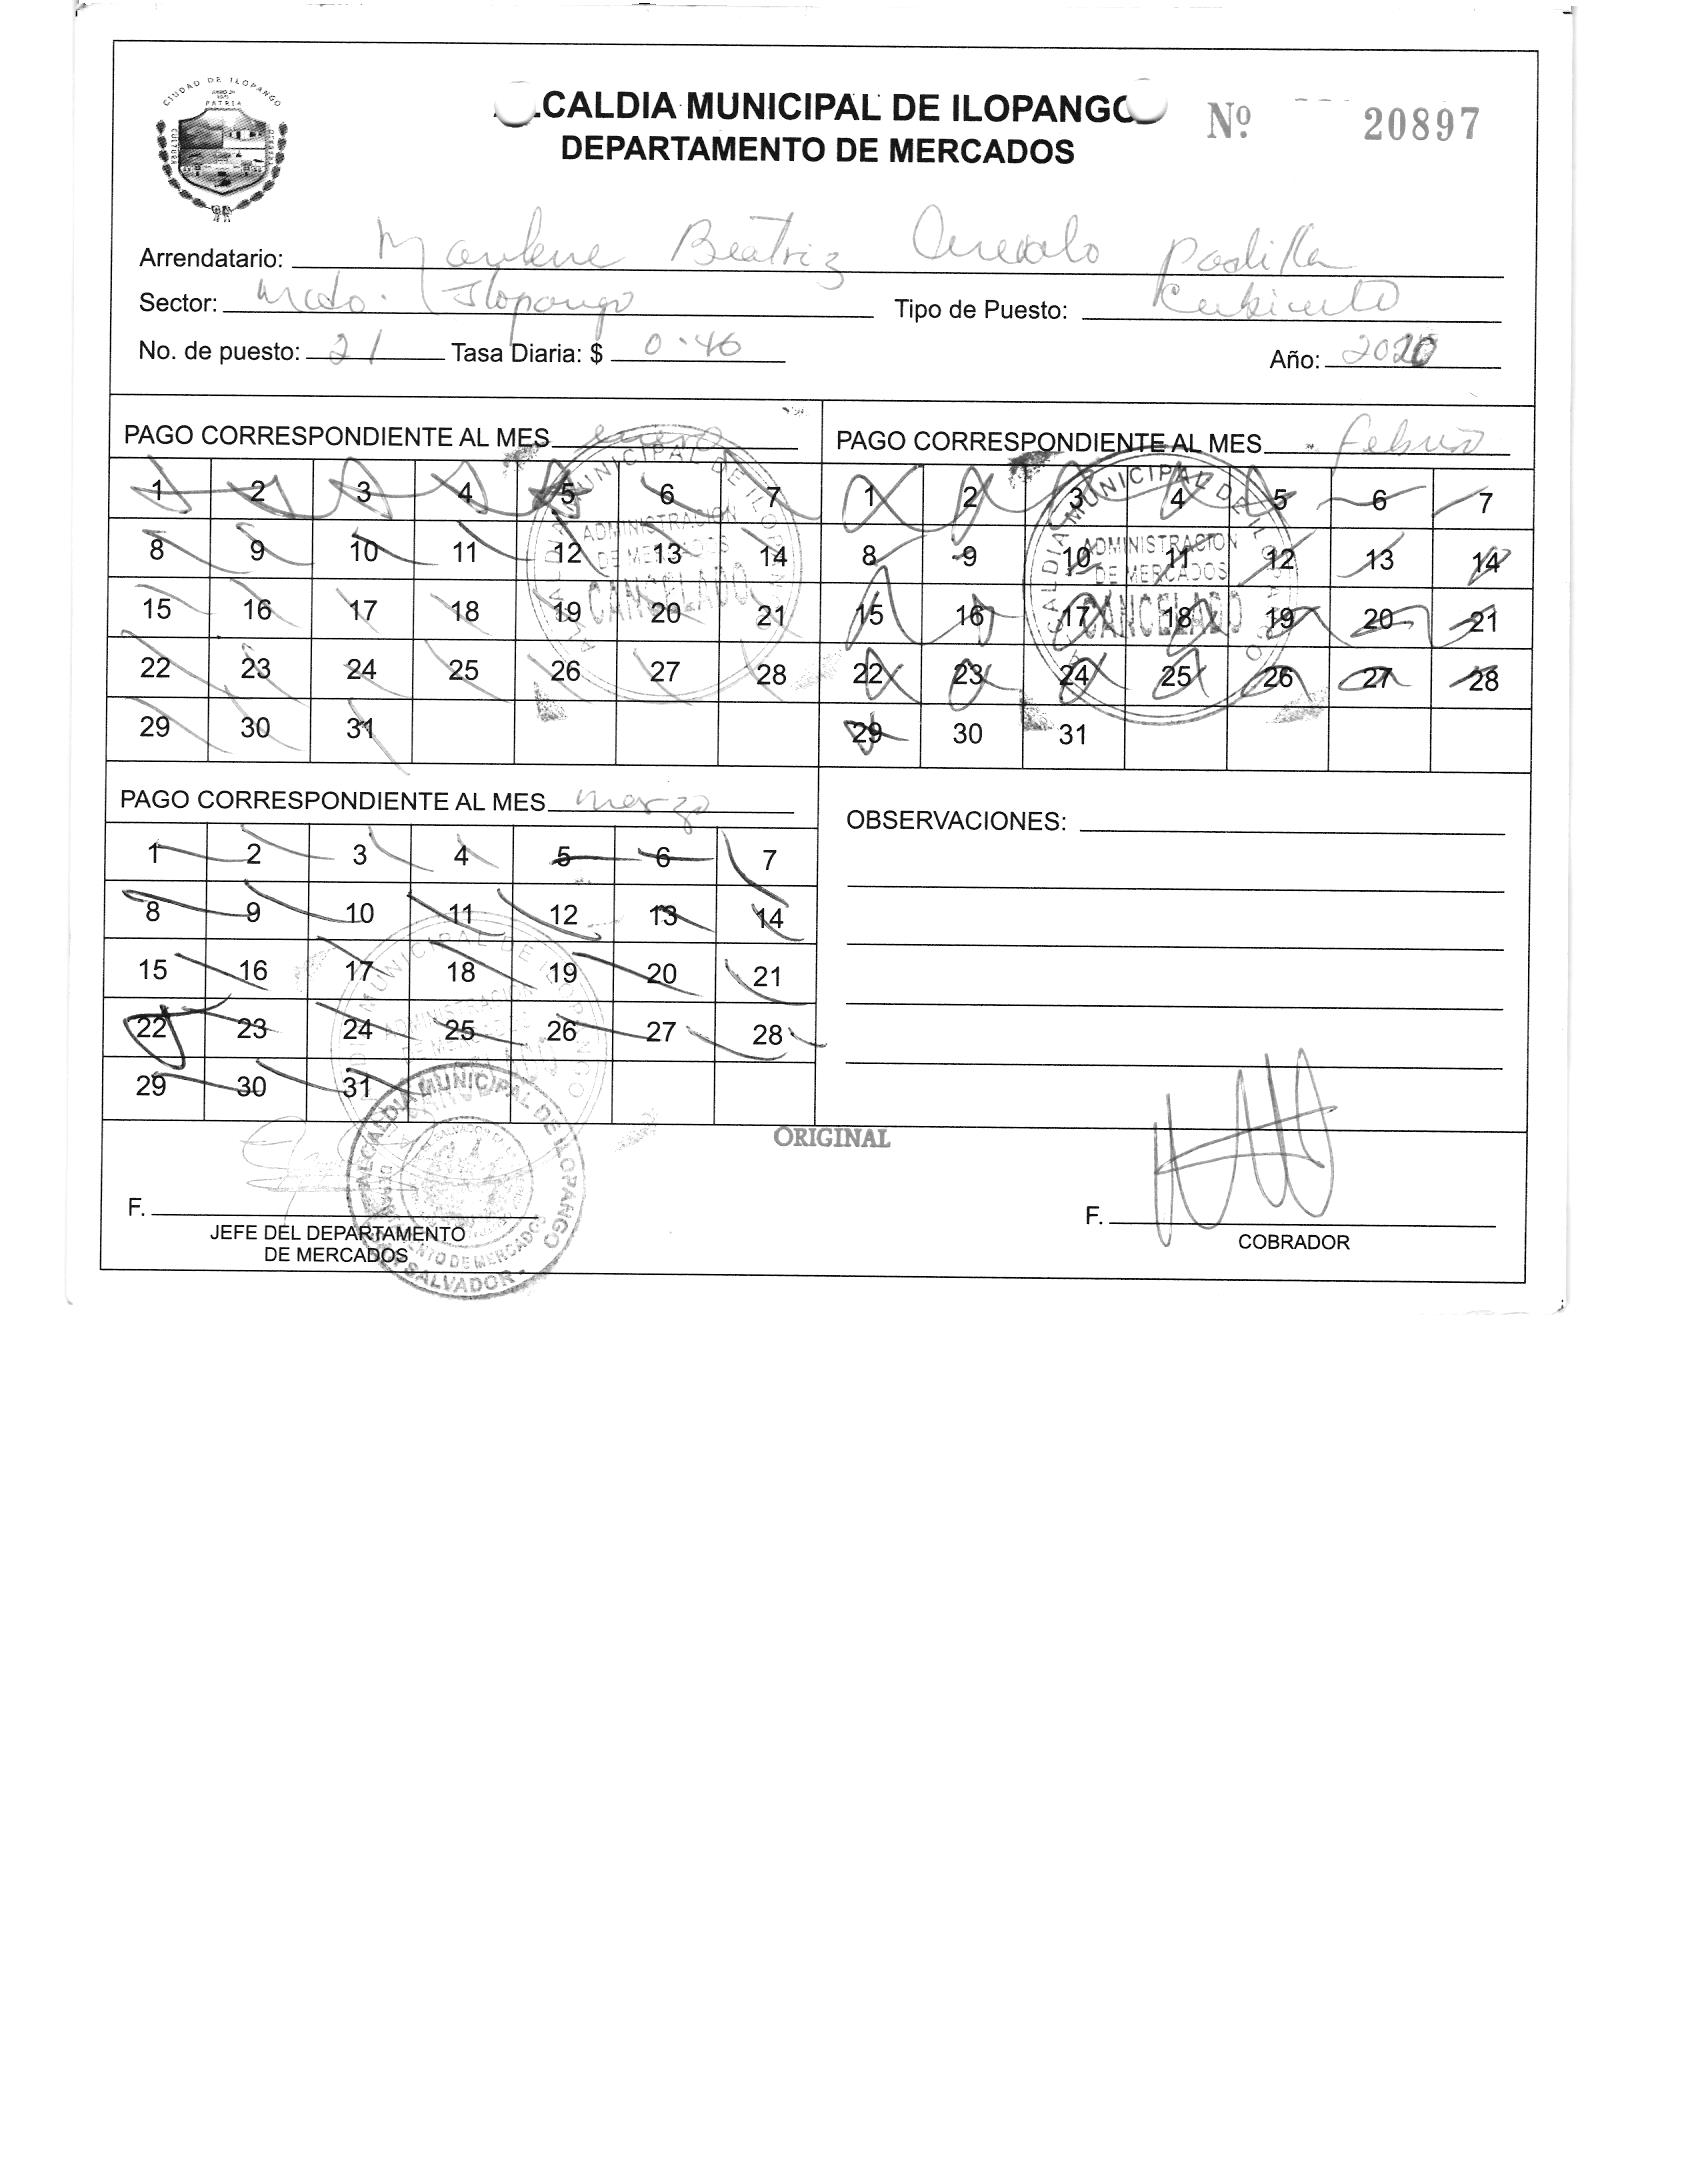 CIUDAD DE ILOPANGO
PATRIA
CULTURA
CALDIA MUNICIPAL DE ILOPANGO
Nº 20897
DEPARTAMENTO DE MERCADOS
Arrendatario: Marlene Beatriz Arevalo Padilla
Sector: Mcdo. Ilopango Tipo de Puesto:
No. de puesto: 21 Tasa Diaria: $ 0.46 Año: 2020
PAGO CORRESPONDIENTE AL MES enero
1 2 3 4 5 6 7
8 9 10 11 12 13 14
15 16 17 18 19 20 21
22 23 24 25 26 27 28
29 30 31
ALCALDIA MUNICIPAL DE ILOPANGO
ADMINISTRACION
DE MERCADOS
CANCELADO
PAGO CORRESPONDIENTE AL MES Febrero
1 2 3 4 5 6 7
8 9 10 11 12 13 14
15 16 17 18 19 20 21
22 23 24 25 26 27 28
29 30 31
ALCALDIA MUNICIPAL DE ILOPANGO
ADMINISTRACION
DE MERCADOS
CANCELADO
PAGO CORRESPONDIENTE AL MES marzo
1 2 3 4 5 6 7
8 9 10 11 12 13 14
15 16 17 18 19 20 21
22 23 24 25 26 27 28
29 30 31
MUNICIPAL DE ILOPANGO
ADMINISTRACION
OBSERVACIONES:
ORIGINAL
ALCALDIA MUNICIPAL DE ILOPANGO
DEPARTAMENTO DE MERCADOS
SALVADOR
F.
JEFE DEL DEPARTAMENTO
DE MERCADOS
F.
COBRADOR